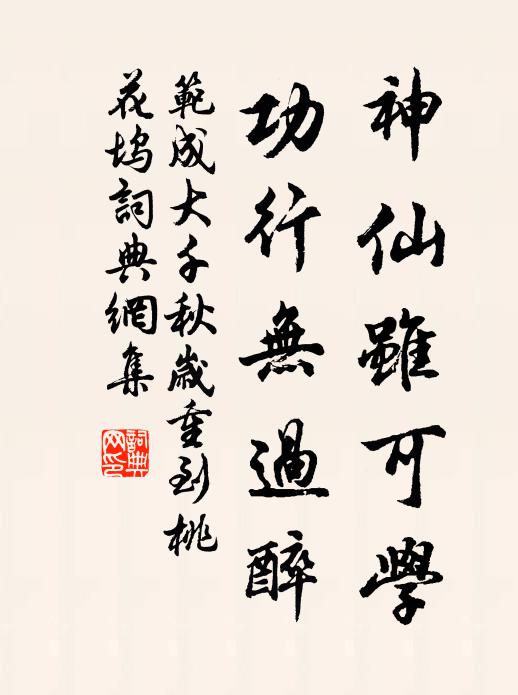 神仙雖可學
功行無過醉
範成大千秋歲重到桃
花塢詞典網集
詞典
网印